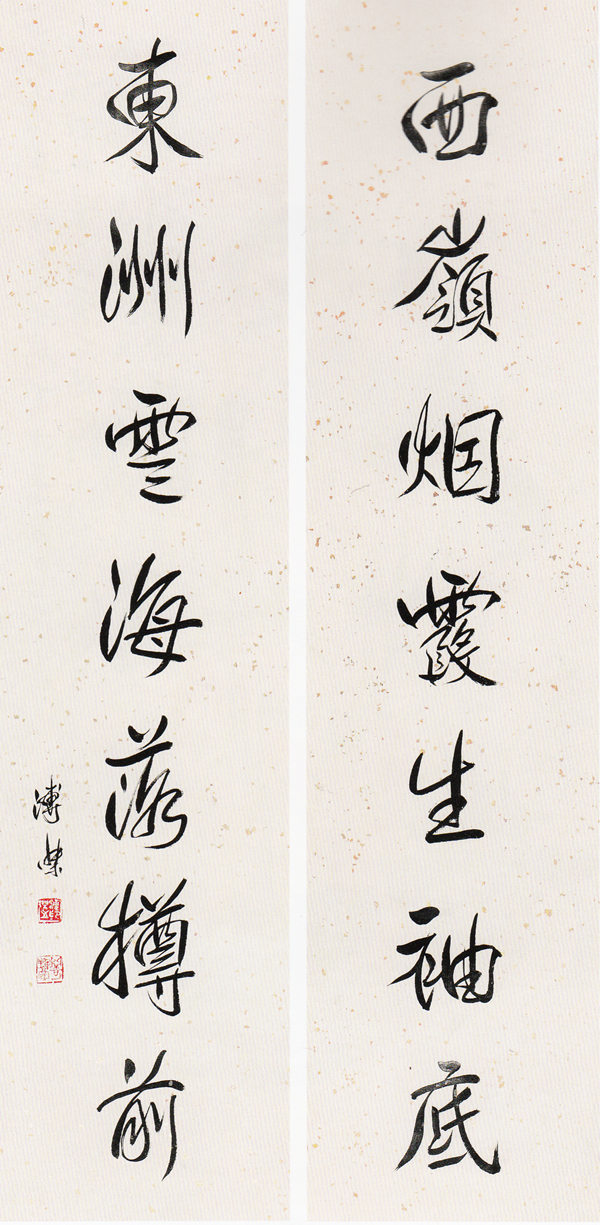 西嶺烟霞生袖底
東洲雲海落樽前
溥